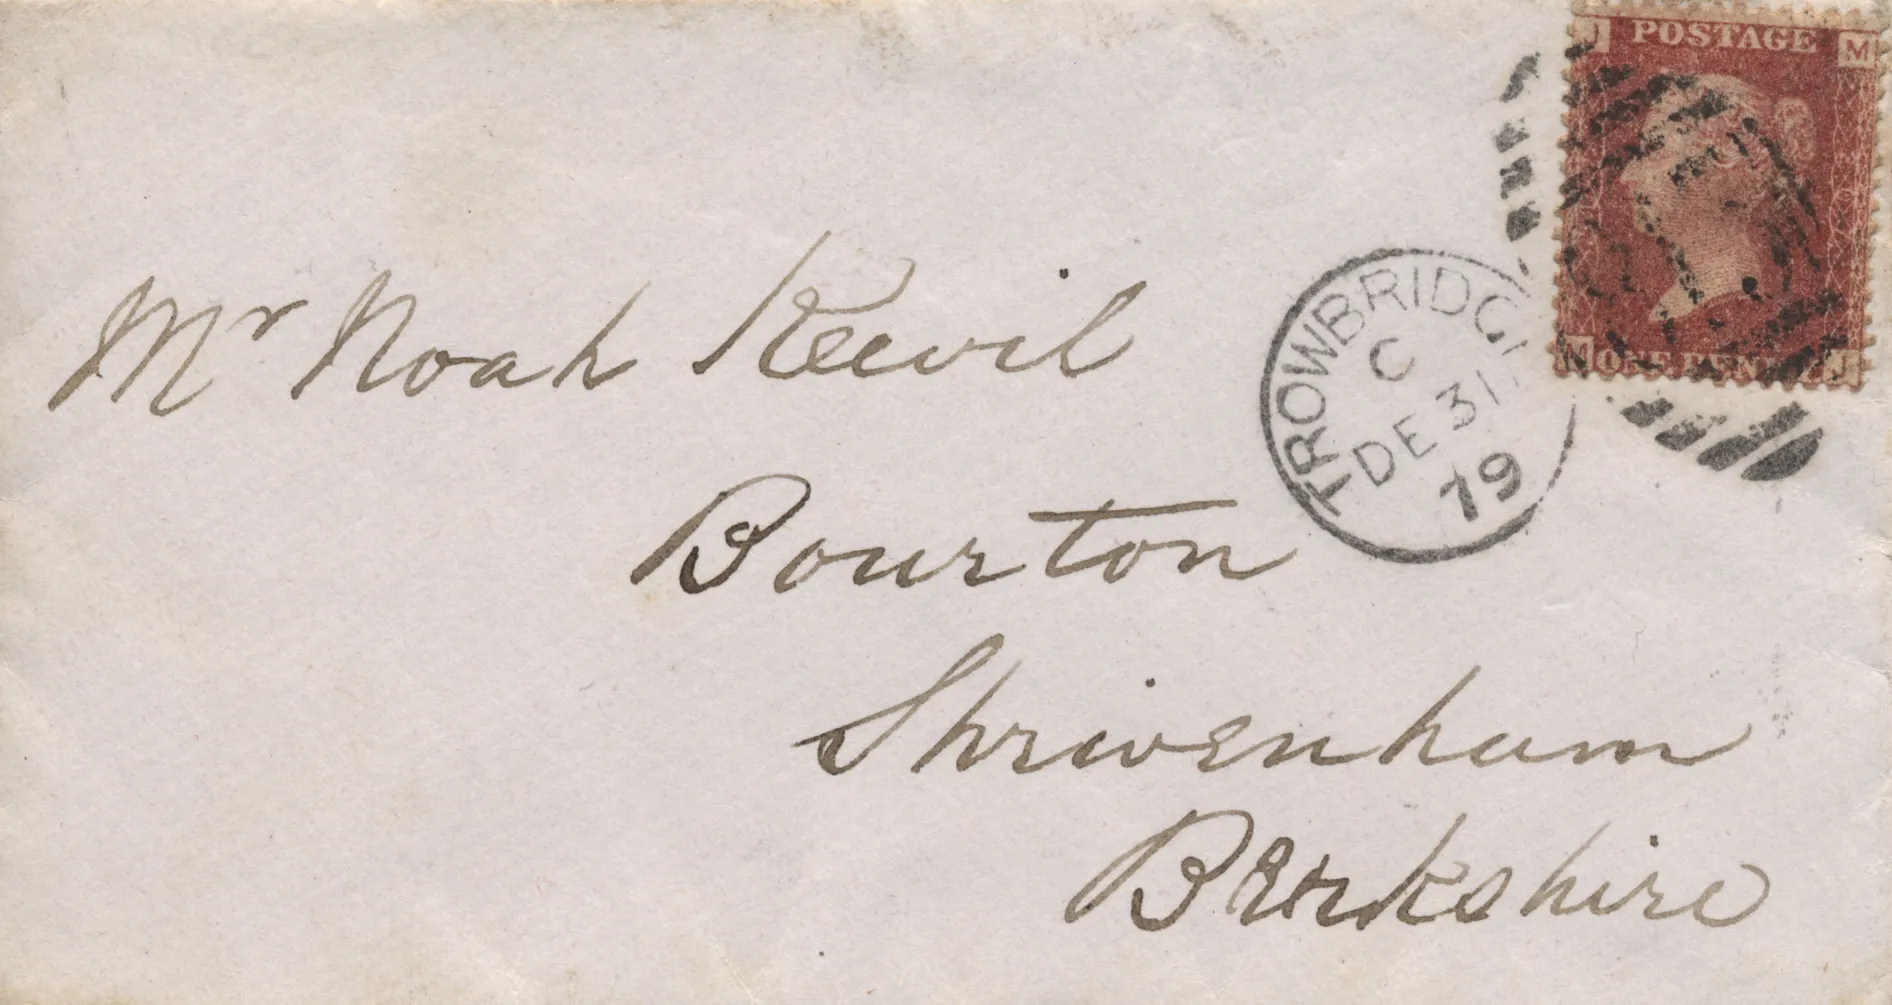 POSTAGE
M
TROWBRIDGE
C
DE 31
79
M
ONE PENNY
J
Mr Noah Keevil
Bourton
Shrivenham
Berkshire